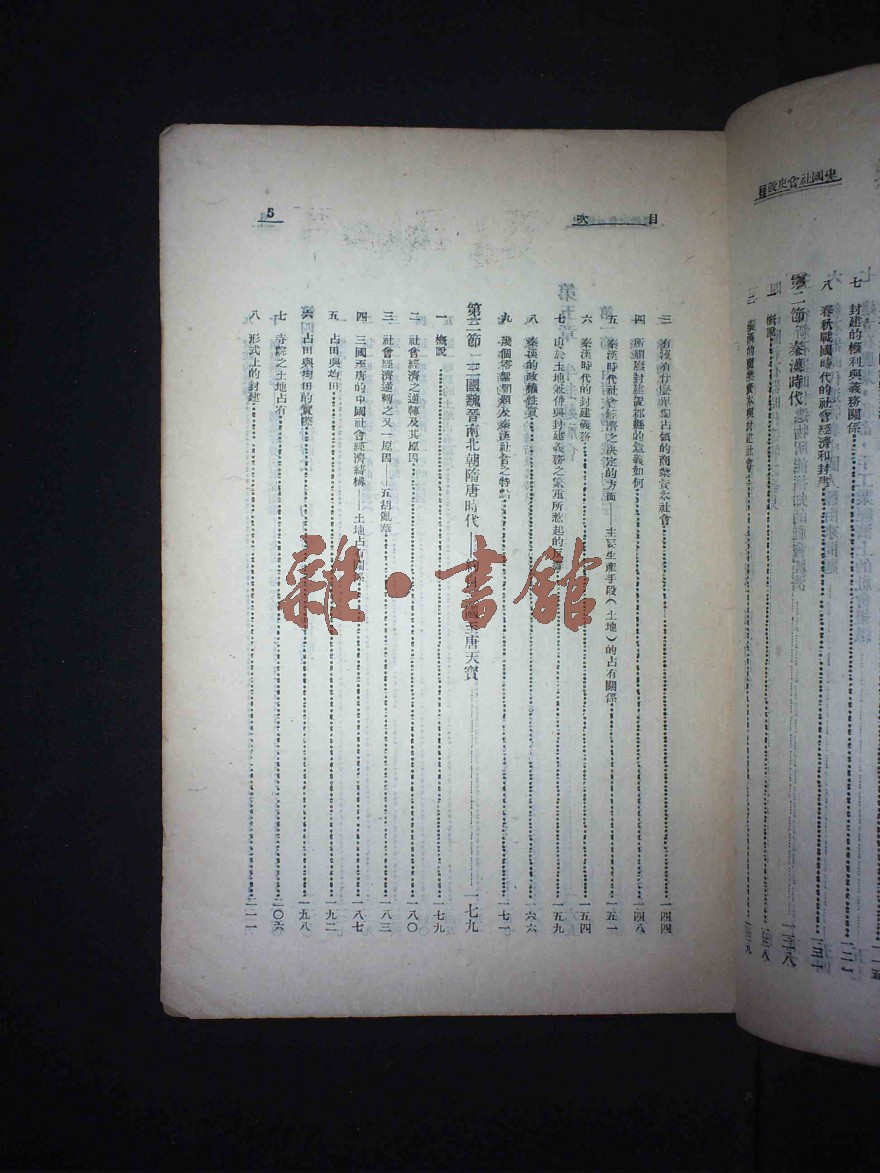 七 封建的權利與義務關係
八 春秋戰國時代的社會經濟和封建
第二節 秦漢時代
一 概說
目 次
5
三 有沒有什麼單獨占領的商業資本社會 一四四
四 所謂廢封建置郡縣的意義如何 一四八
五 秦漢時代社會經濟之決定的方面——主要生產手段(土地)的占有關係 一五一
六 秦漢時代的封建義務 一五四
七 由於土地兼併與封建義務之繁重所惹起的 一五九
八 秦漢的政權性質 一六六
九 幾個零星問題及秦漢社會之特點 一七一
第三節 三國魏晉南北朝隋唐時代——三國至唐天寶 一七九
一 概說 一七九
二 社會經濟之逆轉及其原因 一八〇
三 社會經濟逆轉之又一原因——五胡亂華 一八三
四 三國至唐的中國社會經濟結構——土地占有關係 一八七
五 占田與均田 一九二
六 占田與均田的實際 一九八
七 寺院之土地占有 二〇六
八 形式上的封建 二一一
雜·書館